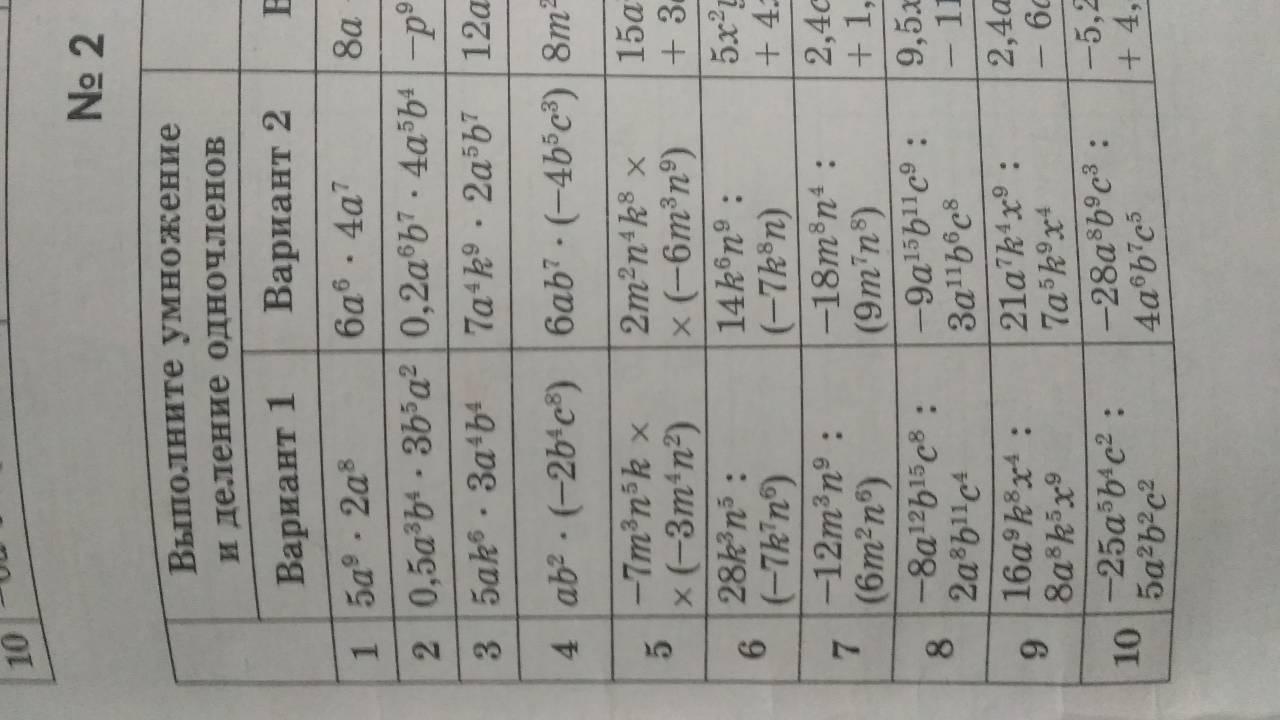 10
№ 2
Выполните умножение
и деление одночленов
Вариант 1
Вариант 2
1
5a⁹ · 2a⁸
6a⁶ · 4a⁷
8a
2
0,5a³b⁴ · 3b⁵a²
0,2a⁶b⁷ · 4a⁵b⁴
−p⁹
3
5ak⁶ · 3a⁴b⁴
7a⁴k⁹ · 2a⁵b⁷
12a
4
ab² · (−2b⁴c⁸)
6ab⁷ · (−4b⁵c³)
8m²
5
−7m³n⁵k ×
× (−3m⁴n²)
2m²n⁴k⁸ ×
× (−6m³n⁹)
15a
+ 3
6
28k³n⁵ :
(−7k⁷n⁶)
14k⁶n⁹ :
(−7k⁸n)
5x²y
+ 4
7
−12m³n⁹ :
(6m²n⁶)
−18m⁸n⁴ :
(9m⁷n⁸)
2,4c
+ 1,
8
−8a¹²b¹⁵c⁸ :
2a⁸b¹¹c⁴
−9a¹⁵b¹¹c⁹ :
3a¹¹b⁶c⁸
9,5x
− 11
9
16a⁹k⁸x⁴ :
8a⁸k⁵x⁹
21a⁷k⁴x⁹ :
7a⁵k⁹x⁴
2,4a
− 6
10
−25a⁵b⁴c² :
5a²b²c²
−28a⁸b⁹c³ :
4a⁶b⁷c⁵
−5,2
+ 4,